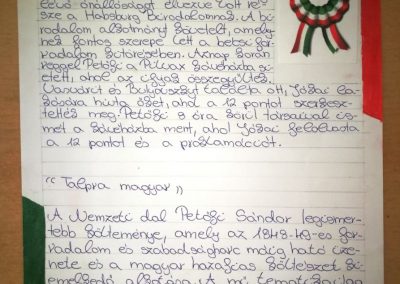 belső önállóságát élvezve lett ré-
sze a Habsburg Birodalomnak. A bi-
rodalom alkotmányt követelt, amely-
nek fontos szerepe lett a bécsi for-
radalom kitörésében. Aznap korán
reggel Petőfi a Pilvax kávéházba si-
etett, ahol az ifjak összegyűltek.
Vasvárit és Bulyovszkyt találta ott, Jókai la-
kására hívta őket, ahol a 12 pontot szerkesz-
tették meg. Petőfi 8 óra körül társaival is-
mét a kávéházba ment, ahol Jókai felolvasta
a 12 pontot és a proklamációt.
"Talpra magyar"
A Nemzeti dal Petőfi Sándor legismer-
tebb költeménye, amely az 1848-49-es for-
radalom és szabadságharc máig ható üze-
nete és a magyar hazafias költészet ki-
emelkedő alkotása. A mű tematikailag